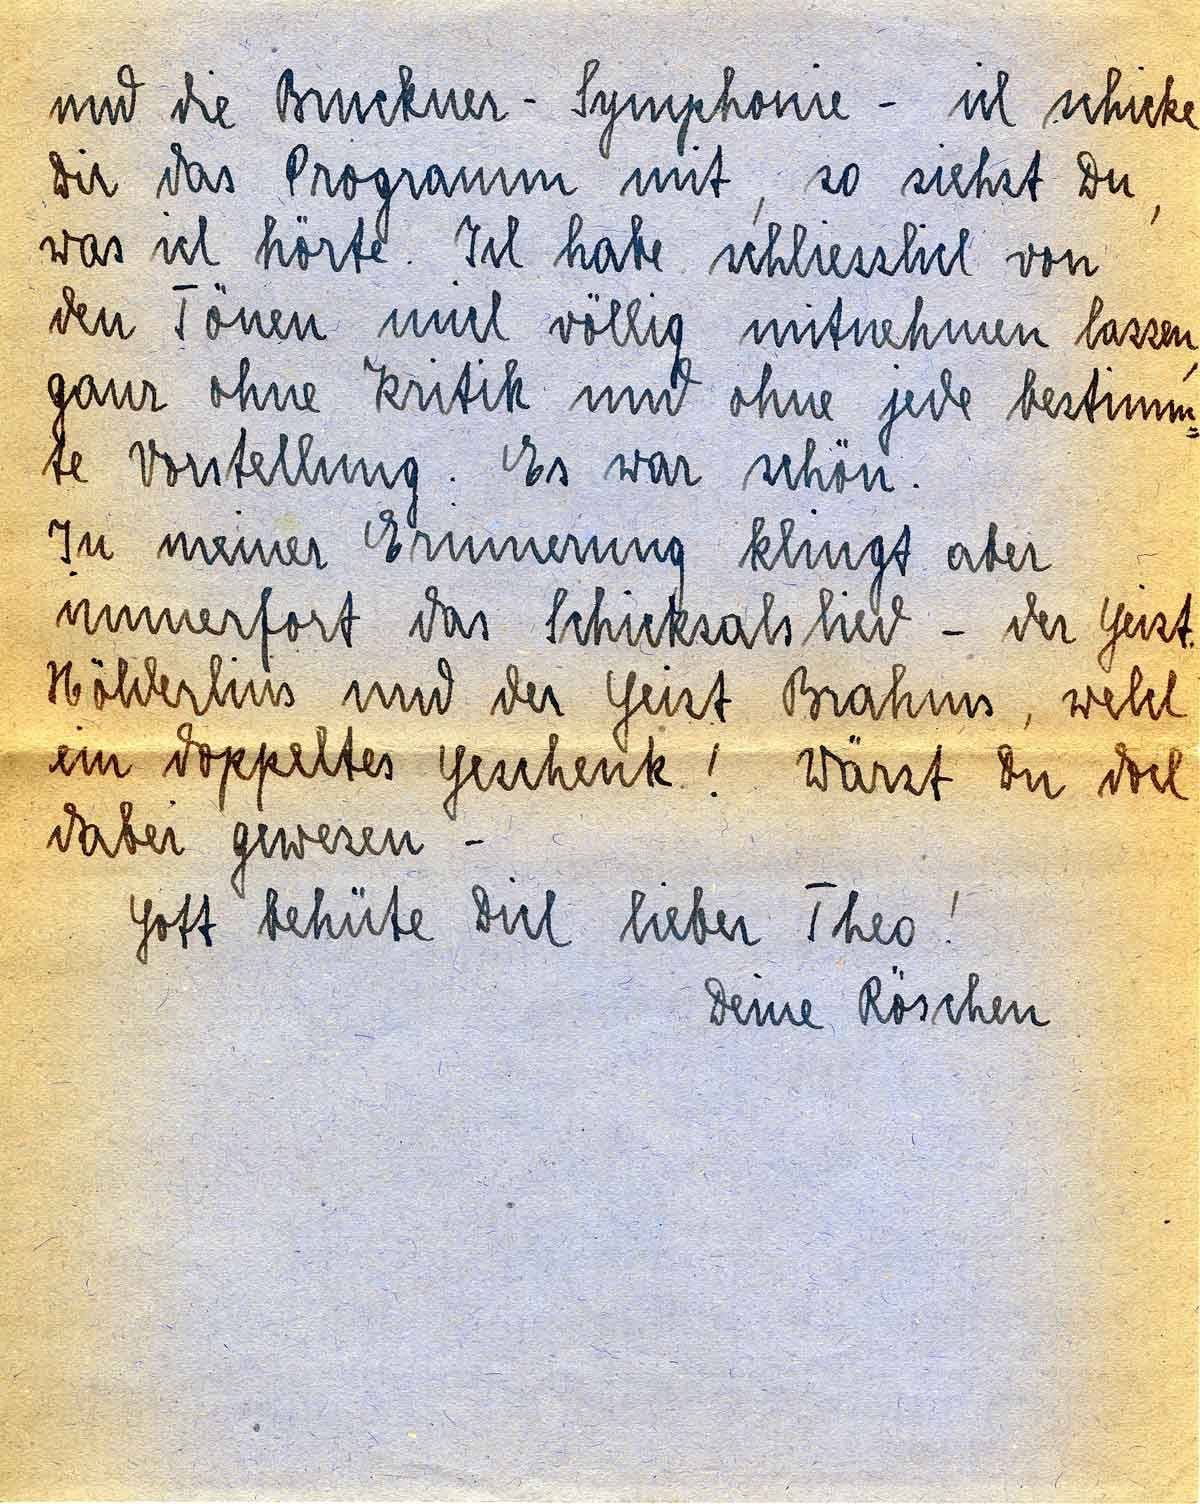 und die Bruckner - Symphonie - ich schicke
Dir das Programm mit, so siehst Du,
was ich hörte. Ich habe schliesslich von
den Tönen mich völlig mitnehmen lassen,
ganz ohne Kritik und ohne jede bestimm=
te Vorstellung. Es war schön.
In meiner Erinnerung klingt aber
immerfort das Schicksalslied - der Geist
Hölderlins und der Geist Brahms, welch
ein doppeltes Geschenk! Wärst Du doch
dabei gewesen -
Gott behüte Dich lieber Theo!
Deine Röschen